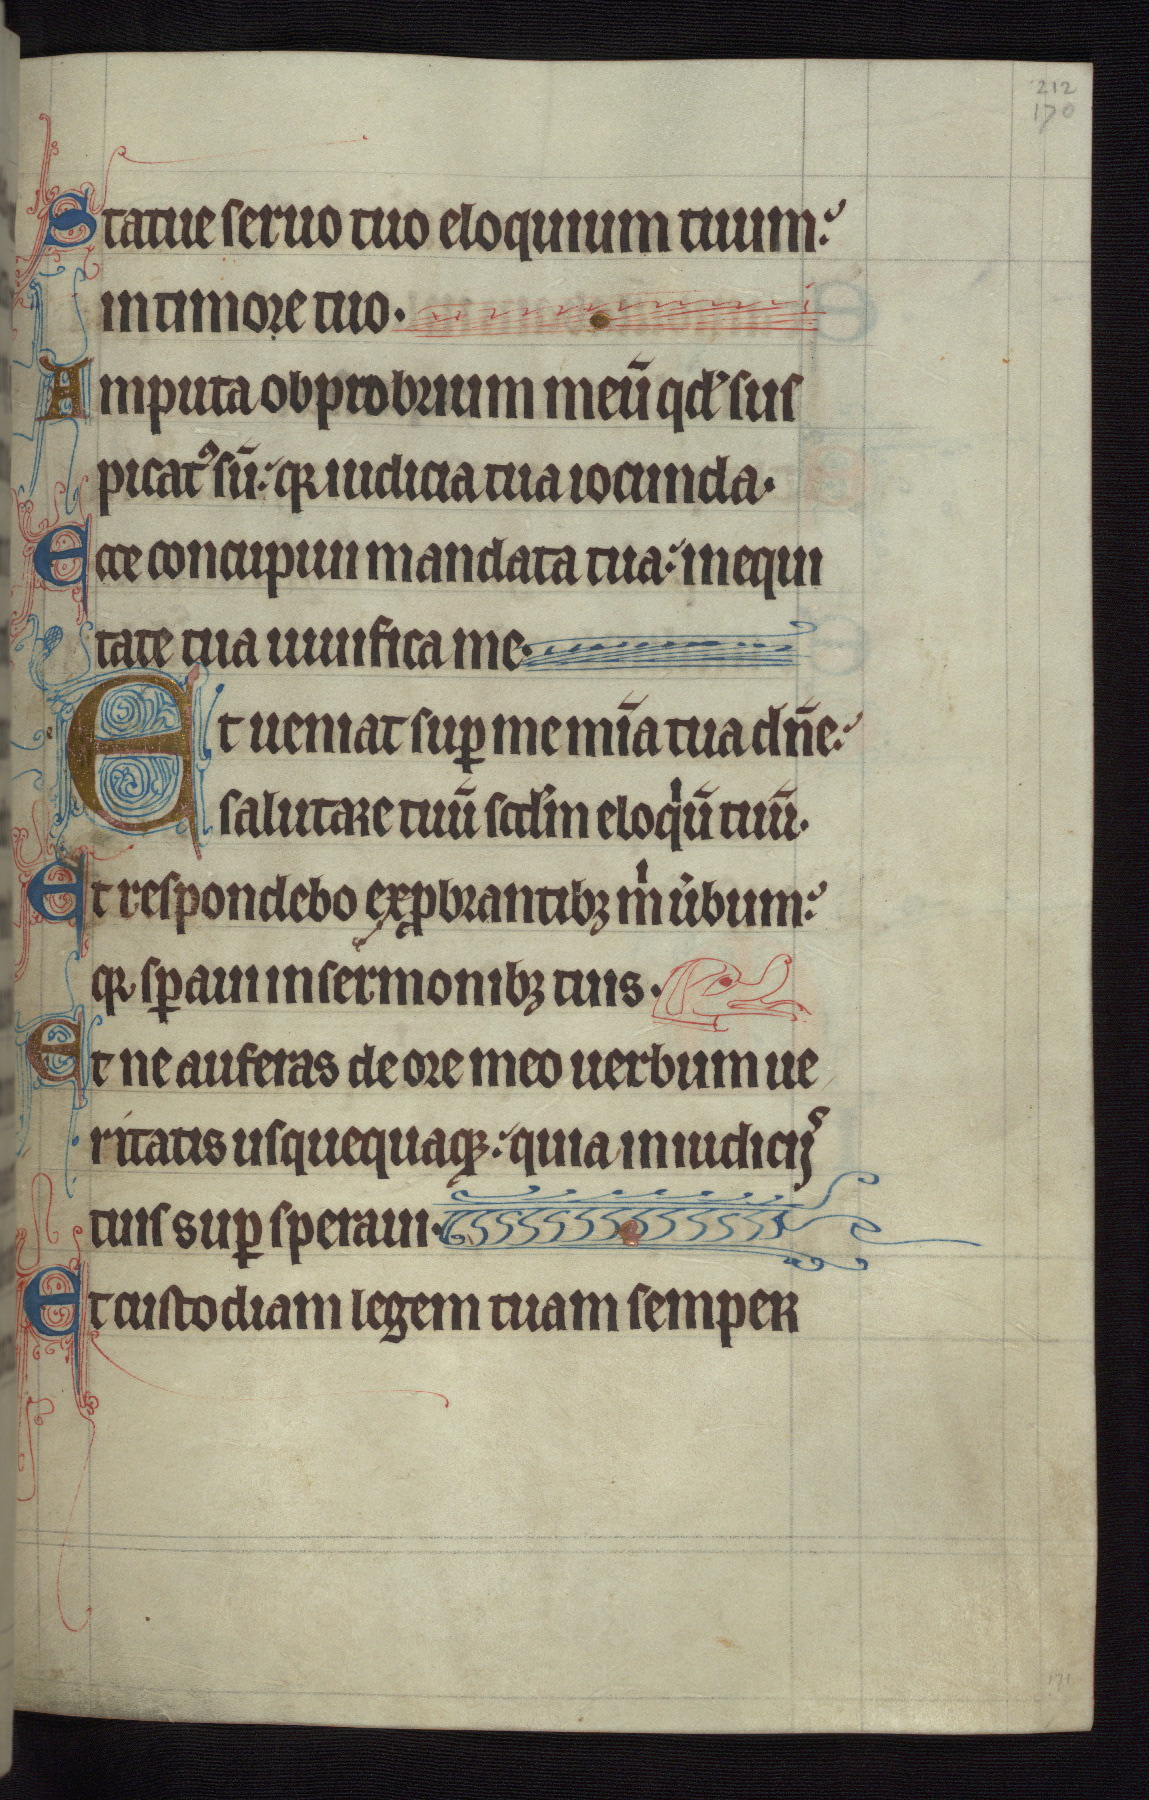 212
170
Statue seruo tuo eloquium tuum:
in timore tuo.
Amputa obprobrium meū qd' sus
picatꝰ sū: qꝛ iudicia tua iocunda.
Ecce concupiui mandata tua: in equi
tate tua uiuifica me.
Et ueniat sup me mīa tua dn̄e:
salutare tuū scdm eloqͥū tuū.
Et respondebo exp̱brantibꝫ mͥ ūbum:
qꝛ sp̱aui in sermonibꝫ tuis.
Et ne auferas de ore meo uerbum ue
ritatis usquequaqꝫ: quia in iudicijˢ
tuis sup speraui.
Et custodiam legem tuam semper
171